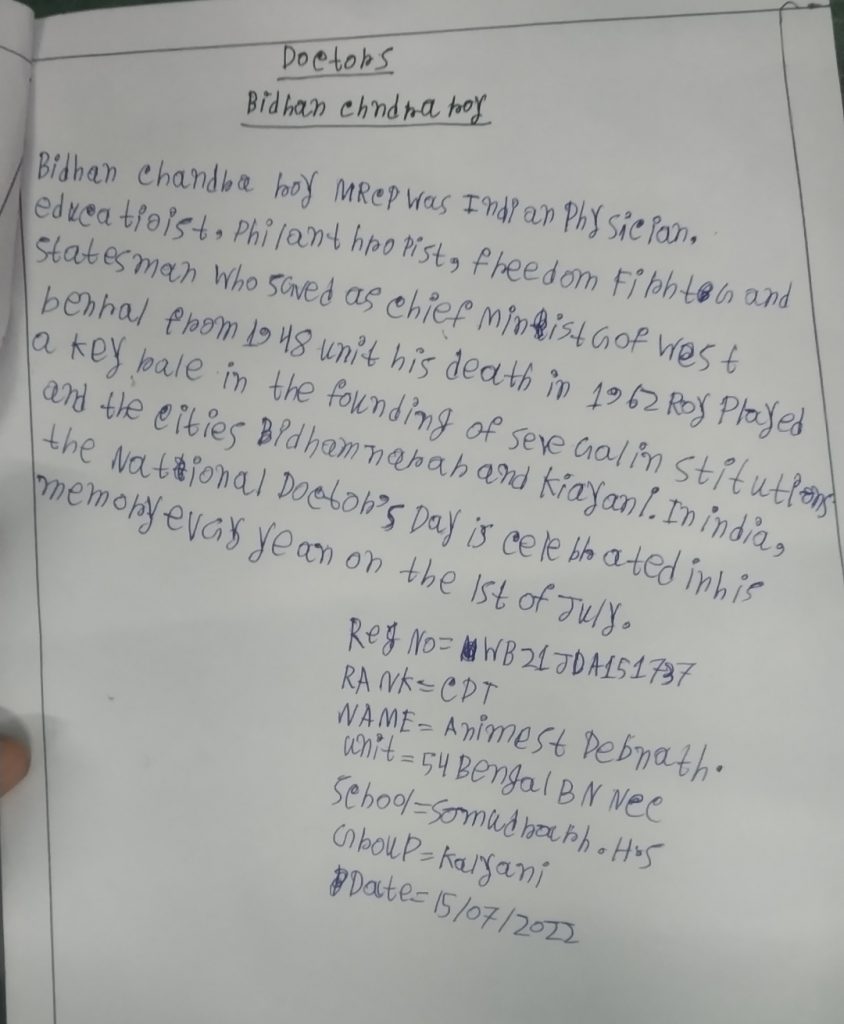 Doctors
Bidhan chndra roy
Bidhan chandra roy MRCP was Indian Physician,
educatioist, Philanthropist, freedom Fighter and
statesman who saved as chief Minister of West
benhal from 1948 unit his death in 1962 Roy Played
a key rale in the founding of several institutions
and the cities Bidhamnarah and Kiayani. In india,
the National Doctor's Day is celebrated in his
memory every year on the 1st of July.
Reg No= WB21JDA151737
RANK= CDT
NAME= Animest Debnath.
unit = 54 Bengal BN Ncc
School= H.S
Group= Kalyani
Date= 15/07/2022